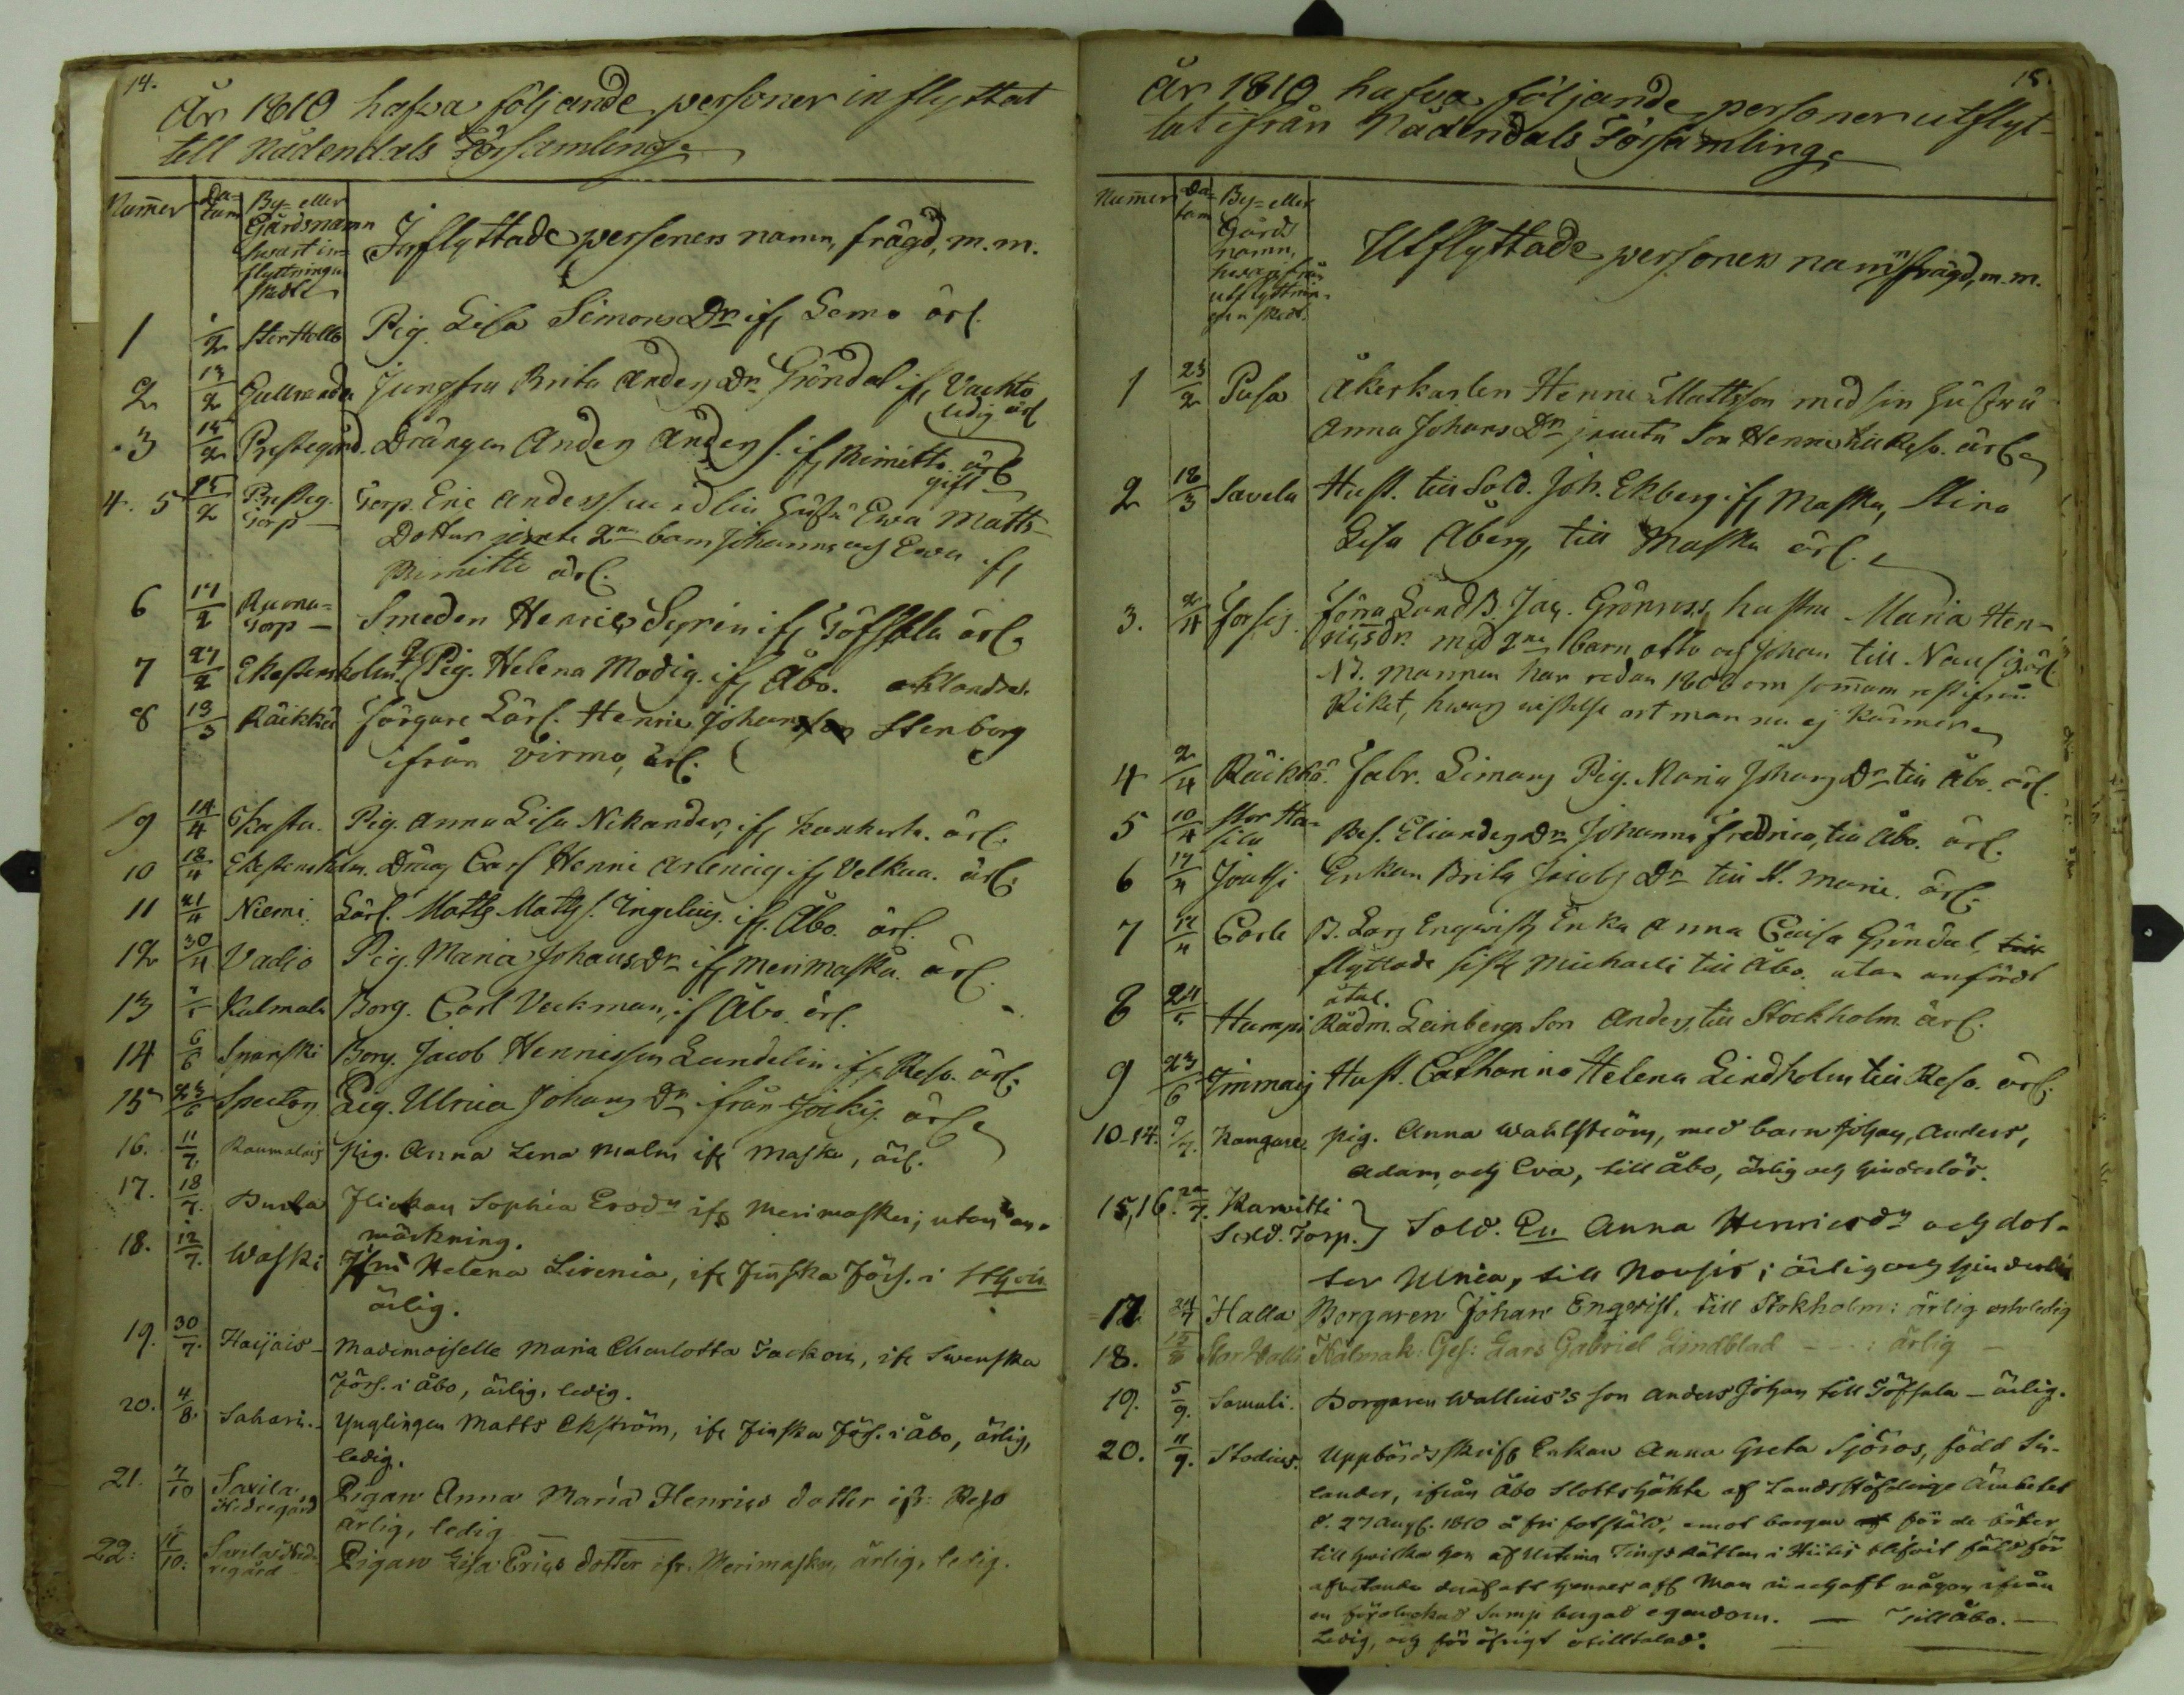 14.
År 1810 hafva följande personer inflyttat
till Nådendals Församling.
Num̄er
Da=
tum
By= eller
Gårdsnamn
hwart in=
flyttningen
skedt
Inflyttade personers namn, frägd, m. m.
1 1/2 Pig. Lisa Simons Dr ifr Lemo ärl.
2 13/2 Gullranda Jungfru Brita Anders Dr Gröndal ifr Vachto
ledig ärl
3 15/2 Prestegård. Drängen Anders Anders s. ifr Rimitto ärl
gift
4. 5 25/2 Presteg. Torp. Eric Anderss. med sin Hustru Ewa Matts
Torp
Dotter jemte 2ne barn Johanna och Ewa ifr
Rimitto ärl.
6 17/2 Smeden Henric Syrén ifr Töfsala ärl.
Torp
7 27/2 Ekestensholm. Pig. Helena Modig. ifr Åbo. oklandrad.
8 13/3 Räikkö Färgare Lärl. Henric Johansson Stenberg
ifrån Virmo, ärl.
9 14/4 Pig. Anna Lisa Nikander, ifr Kankerla. ärl.
10 18/4 Ekestensholm. Dräng Carl Henric Arlenius ifr Velkua. ärl.
11 21/4 Niemi. Lärl. Matts Matts s. Ingelius. ifr. Åbo. ärl.
12 30/4 Vadjo Pig. Maria Johans Dr ifr Merimasku. ärl.
13 Kulmala Borg. Carl Veckman, if Åbo. ärl.
14 6/6 Borg. Jacob Henricsson Lundelin ifr Reso. ärl.
15 23/6 Pig. Ulrica Johans Dr ifrån Jockis. ärl
16. 11/7. Raumalais Pig. Anna Lena Malm ifr Masku, ärl.
17. 18/7. Flickan Sophia Ersdr ifr Merimasku; utan an-
märkning.
18. 12/7. Waski Helena Lirenia, ifr Finska Förs. i Stholm
ärlig.
19. 30/7. Haijais Mademoiselle Maria Charlotta Tackou, ifr Swenska
Förs. i Åbo, ärlig, ledig.
20. 4/8. Sahari. Ynglingen Matts Ekström, ifr Finska Förs. i Åbo, ärlig,
ledig.
21. 7/10 Saxila Pigan Anna Maria Henrics dotter ifr: Reso
Nedregård
ärlig, ledig
22: 11/10: Saxila Ned- Pigan Lisa Erics dotter ifr. Merimasku, ärlig, ledig.
regård
15.
År 1810 hafva följande personer utflyt-
tat ifrån Nådendals Församling.
Num̄er
Da=
tum
By= eller
Gårds
namn,
hwarifrån
utflyttnin-
gen skedt.
Utflyttade personers namn frägd, m. m.
1 23/2 Pusa Åkerkarlen Henric Mattsson med sin Hustru
Anna Johans Dr jemte Son Henric till Reso. ärl
2 18/3 Savela Hust. till Sold. Joh. Ekberg ifr Masku, Stina
Lisa Åberg, till Masku ärl.
3. 2/4 Förra LandB. Jac. Grönross hustru Maria Hen-
ricsdr. med 2ne barn Otto och Johan till Nousis ärl
Nt. Mannen har redan 1808 om som̄aren rest ifrån
Riket, hwars wistelse ort man nu ej kän̄er
4 2/4 Räikkö. Fabr. Limans Pig. Maria Johans Dr till Åbo. ärl.
5 10/4 Stor Ha- Bes. Elianders Dr Johanna Fredrica, till Åbo. ärl.
sila
6 17/4 Joutsi Enkan Brita Jacobs Dr till St. Marie. ärl.
7 12/4 Carle B. Lars Engwists Enka Anna Caisa Gröndal, till
flyttade sistl Michaeli till Åbo. utan anfördt
åtal.
8 24/5 Humpi Rådm. Leinbergs Son Anders, till Stockholm ärl.
9 23/6 Hust. Catharina Helena Lindholm till Reso. ärl.
10-14. 9/7. Kangare. Pig. Anna Wahlström, med barn Johan, Anders,
Adam, och Eva, till Åbo, ärlig och hinderlös.
15, 16. Karwitti
Sold. Torp. } Sold. En. Anna Henricsdr och dot-
ter Ulrica, till Nousis; ärlig och hinderlös
17 24/7 Halla Borgaren Johan Enqvist. till Stokholm: ärlig och ledig
18. 15/8 Stor Walli Kälmak: Ges: Lars Gabriel Lindblad - - : ärlig
19. 5/9. Samuli. Borgaren Wallius's son Anders Johan till Töfsala - ärlig.
20. 11/9. Stodius. Uppbördsskrifv Enkan Anna Greta Sjöroos, född Si-
lander, ifrån Åbo Slottshäkte af Lands Höfdinge Ämbetet
d. 27 Aug. 1810 å fri fot stäld, emot borgen för de böter
till hwilka hon af Urtima Tings Rätten i Hiitis blifvit fäld för
afvetande deraf att hennes afl Man innehaft någon ifrån
en förolyckad bergad egendom. — Till Åbo. —
Ledig, och för öfrigt otilltalad.